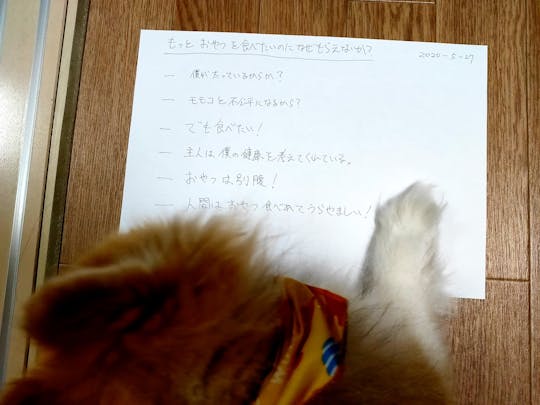 もっと おやつを食べたいのに なぜもらえないか？ 2020-5-27
— 僕が太っているからか？
— モモコと不公平になるから？
— でも食べたい！
— 主人は僕の健康を考えてくれている。
— おやつは別腹！
— 人間はおやつ食べれてうらやましい！